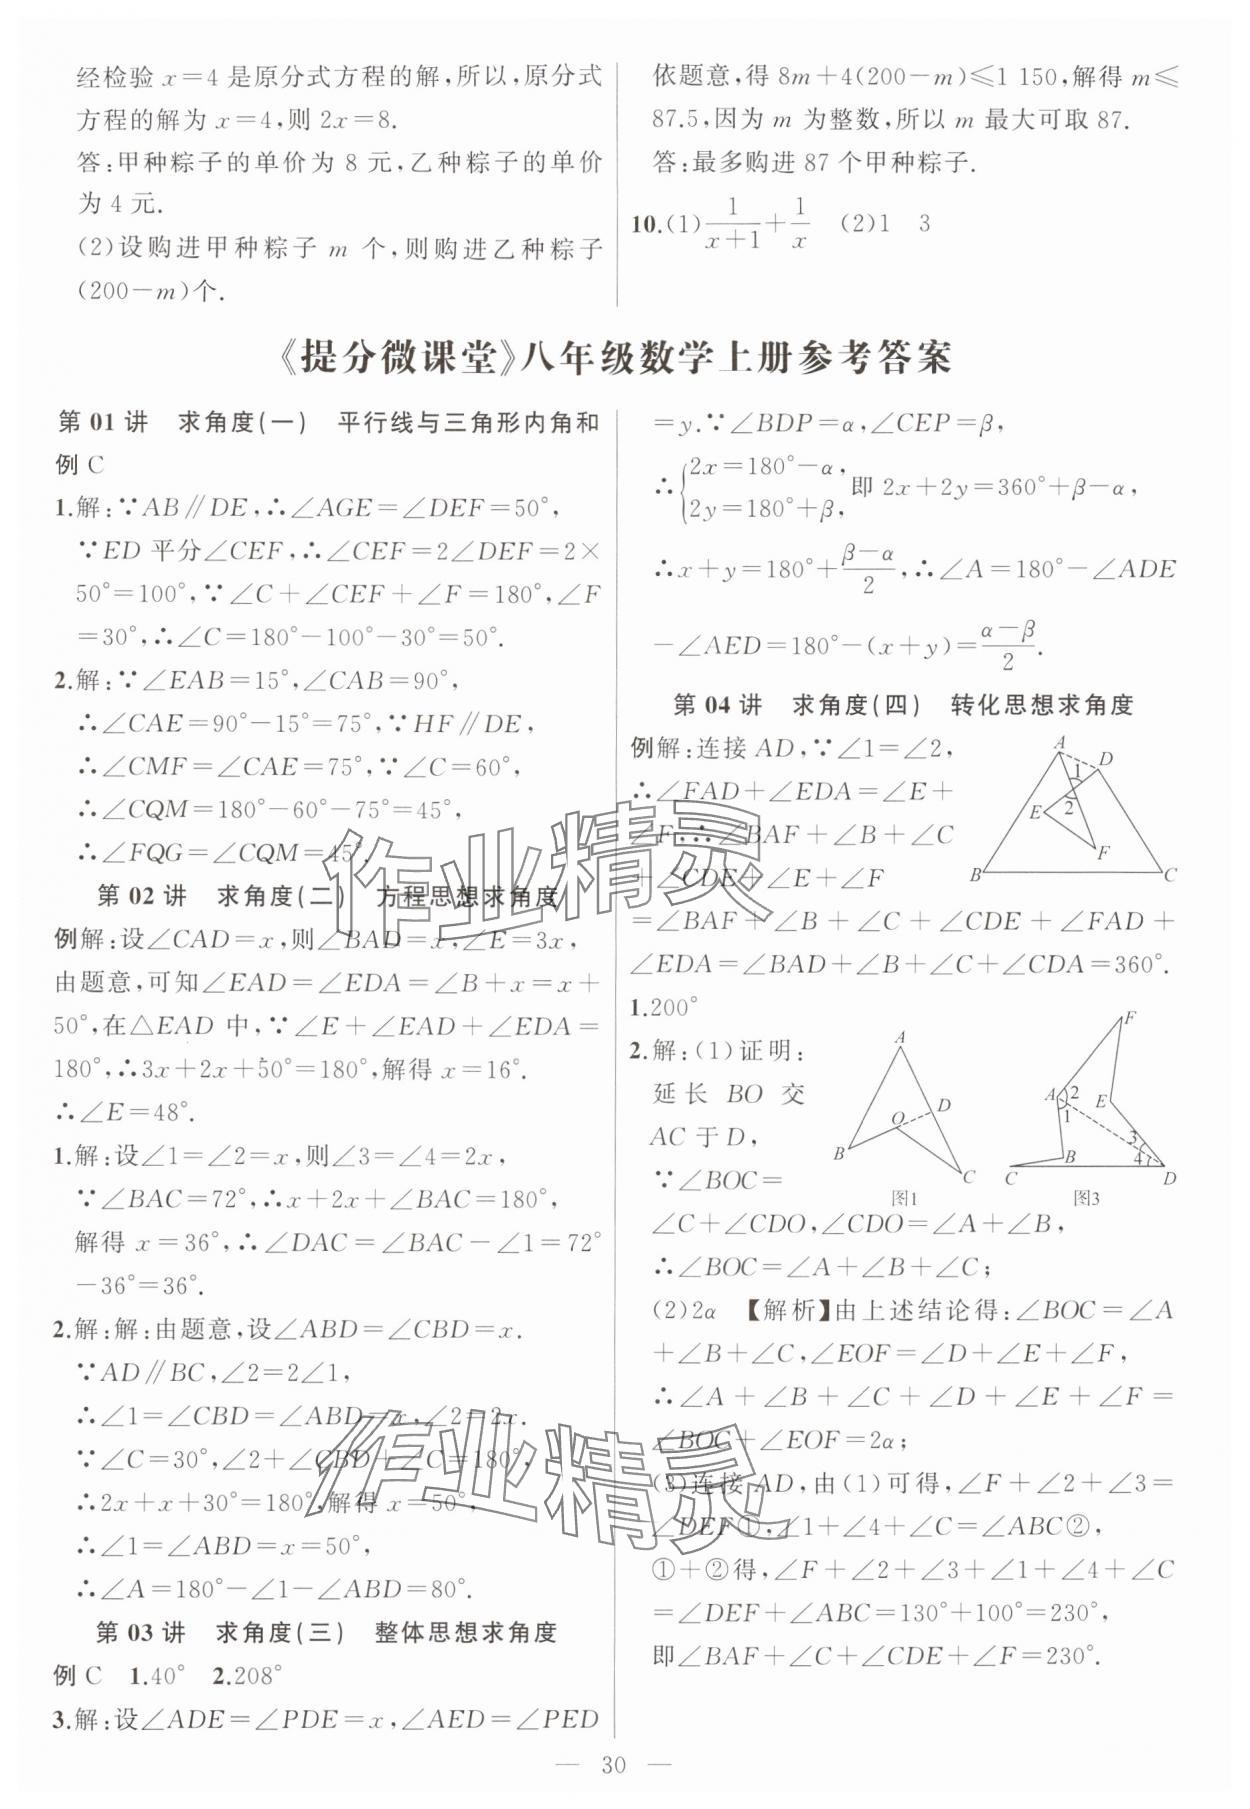 经检验 x=4 是原分式方程的解,所以,原分式
方程的解为 x=4,则 2x=8.
答:甲种粽子的单价为 8 元,乙种粽子的单价
为 4 元.
(2)设购进甲种粽子 m 个,则购进乙种粽子
(200-m)个.
依题意,得 8m+4(200-m)≤1 150,解得 m≤
87.5,因为 m 为整数,所以 m 最大可取 87.
答:最多购进 87 个甲种粽子.
10.(1)1/(x+1)+1/x (2)1 3
《提分微课堂》八年级数学上册参考答案
第 01 讲 求角度(一) 平行线与三角形内角和
例 C
1.解:∵AB∥DE,∴∠AGE=∠DEF=50°,
∵ED 平分∠CEF,∴∠CEF=2∠DEF=2×
50°=100°,∵∠C+∠CEF+∠F=180°,∠F
=30°,∴∠C=180°-100°-30°=50°.
2.解:∵∠EAB=15°,∠CAB=90°,
∴∠CAE=90°-15°=75°,∵HF∥DE,
∴∠CMF=∠CAE=75°,∵∠C=60°,
∴∠CQM=180°-60°-75°=45°,
∴∠FQG=∠CQM=45°.
第 02 讲 求角度(二) 方程思想求角度
例解:设∠CAD=x,则∠BAD=x,∠E=3x,
由题意,可知∠EAD=∠EDA=∠B+x=x+
50°,在△EAD 中,∵∠E+∠EAD+∠EDA=
180°,∴3x+2x+50°=180°,解得 x=16°.
∴∠E=48°.
1.解:设∠1=∠2=x,则∠3=∠4=2x,
∵∠BAC=72°,∴x+2x+∠BAC=180°,
解得 x=36°,∴∠DAC=∠BAC-∠1=72°
-36°=36°.
2.解:解:由题意,设∠ABD=∠CBD=x.
∵AD∥BC,∠2=2∠1,
∴∠1=∠CBD=∠ABD=x,∠2=2x.
∵∠C=30°,∠2+∠CBD+∠C=180°,
∴2x+x+30°=180°,解得 x=50°,
∴∠1=∠ABD=x=50°,
∴∠A=180°-∠1-∠ABD=80°.
第 03 讲 求角度(三) 整体思想求角度
例 C 1.40° 2.208°
3.解:设∠ADE=∠PDE=x,∠AED=∠PED
=y.∵∠BDP=α,∠CEP=β,
∴{2x=180°-α,
2y=180°+β,即 2x+2y=360°+β-α,
∴x+y=180°+(β-α)/2,∴∠A=180°-∠ADE
-∠AED=180°-(x+y)=(α-β)/2.
第 04 讲 求角度(四) 转化思想求角度
例解:连接 AD,∵∠1=∠2,
∴∠FAD+∠EDA=∠E+
∠F,∴∠BAF+∠B+∠C
+∠CDE+∠E+∠F
=∠BAF+∠B+∠C+∠CDE+∠FAD+
∠EDA=∠BAD+∠B+∠C+∠CDA=360°.
A
D
1
E
2
F
B
C
1.200°
2.解:(1)证明:
延长 BO 交
AC 于 D,
∵∠BOC=
∠C+∠CDO,∠CDO=∠A+∠B,
∴∠BOC=∠A+∠B+∠C;
A
O
D
B
C
图1
F
A
2
1
E
3
B
4
C
D
图3
(2)2α 【解析】由上述结论得:∠BOC=∠A
+∠B+∠C,∠EOF=∠D+∠E+∠F,
∴∠A+∠B+∠C+∠D+∠E+∠F=
∠BOC+∠EOF=2α;
(3)连接 AD,由(1)可得,∠F+∠2+∠3=
∠DEF①,∠1+∠4+∠C=∠ABC②,
①+②得,∠F+∠2+∠3+∠1+∠4+∠C
=∠DEF+∠ABC=130°+100°=230°,
即∠BAF+∠C+∠CDE+∠F=230°.
作业精灵
作业精灵
— 30 —